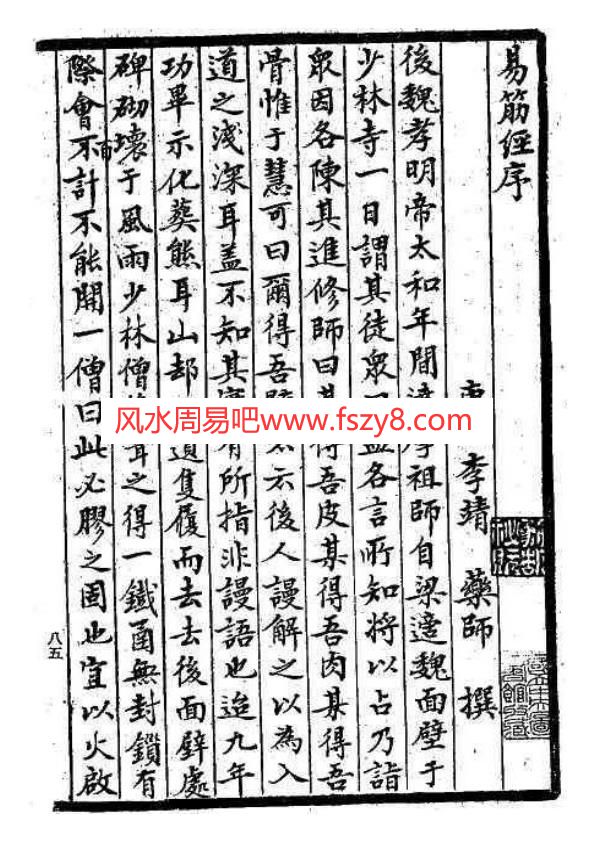 易筋經序
李靖 藥師 撰
後魏孝明帝太和年間達摩祖師自梁適魏面壁于
少林寺一日謂其徒衆曰盍各言所知將以占乃詣
衆因各陳其進修師曰某得吾皮某得吾肉某得吾
骨惟于慧可曰爾得吾云後人謾解之以為入
道之淺深耳蓋不知其實有所指非謾語也迨九年
功畢示化葬熊耳山郤遺隻履而去去後面壁處
碑砌壞于風雨少林僧葺之得一鐵函無封鎖有
際會而不計不能開一僧曰此必膠之固也宜以火啟
八五
风水周易吧www.fszy8.com